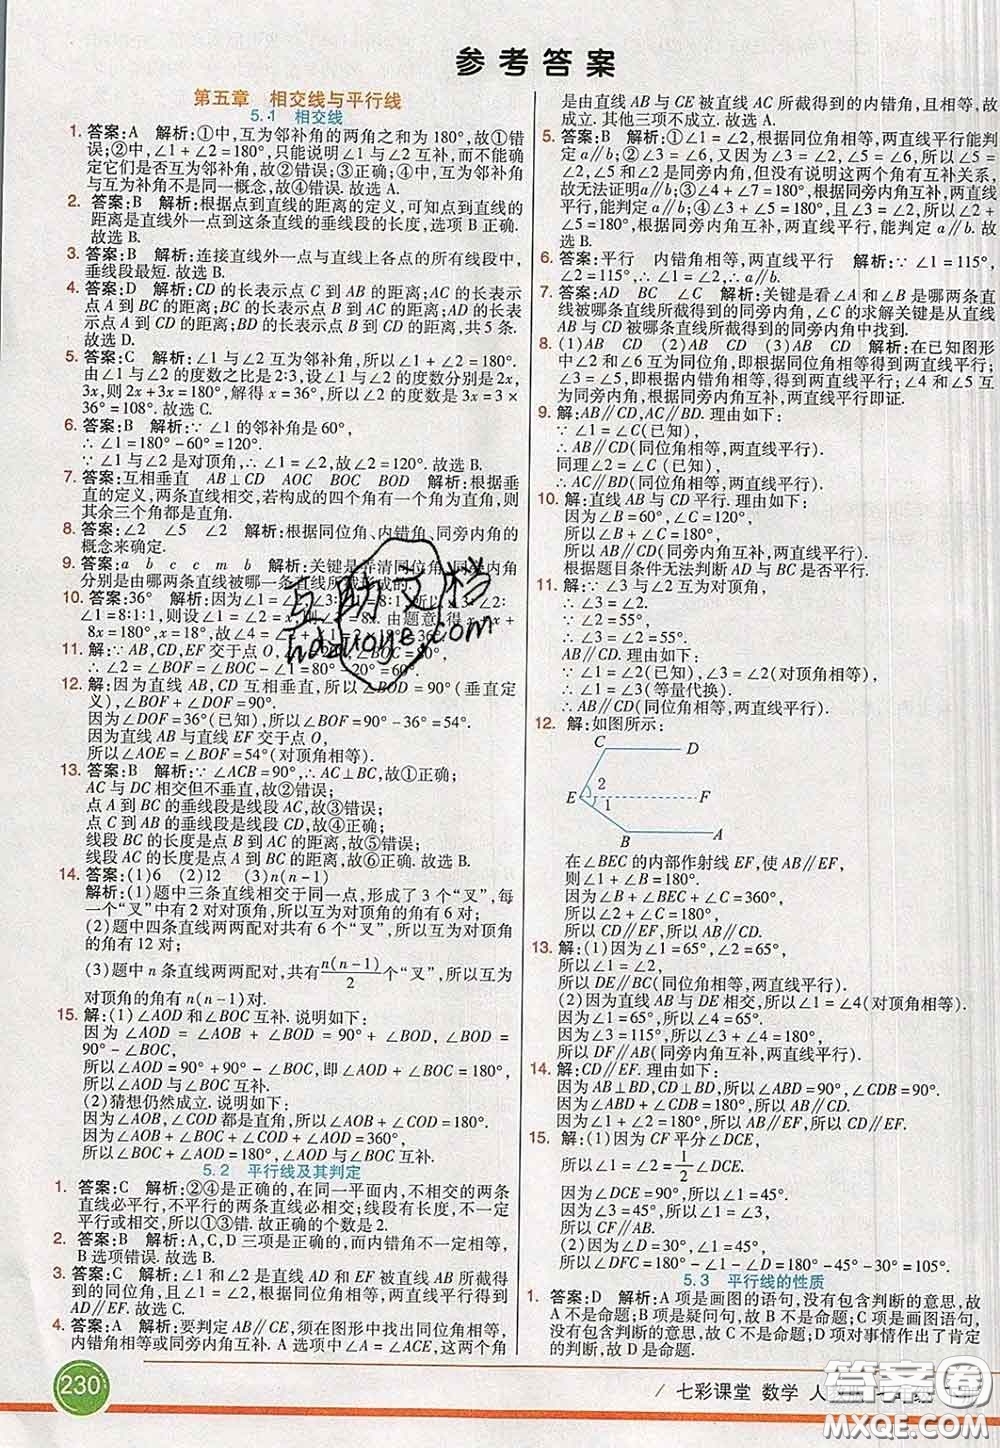 参考答案
第五章 相交线与平行线
5.1 相交线
1. 答案:A 解析:①中,互为邻补角的两角之和为180°,故①错
误;②中,∠1+∠2=180°,只能说明∠1与∠2互补,而不能确
定它们是否互为邻补角,故②错误;③正确;④中,互为邻补角
与互为补角不是同一概念,故④错误.故选A.
2. 答案:B 解析:根据点到直线的距离的定义,可知点到直线的
距离是直线外一点到这条直线的垂线段的长度,选项B正确.
故选B.
3. 答案:B 解析:连接直线外一点与直线上各点的所有线段中,
垂线段最短.故选B.
4. 答案:D 解析:CD的长表示点C到AB的距离;AC的长表示
点A到BC的距离;BC的长表示点B到AC的距离;AD的长表
示点A到CD的距离;BD的长表示点B到CD的距离,共5条.
故选D.
5. 答案:C 解析:∠1与∠2互为邻补角,所以∠1+∠2=180°.
由∠1与∠2的度数之比是2:3,设∠1与∠2的度数分别是2x,
3x,则2x+3x=180°,解得x=36°,所以∠2的度数是3x=3×
36°=108°.故选C.
6. 答案:B 解析:∵∠1的邻补角是60°,
∴∠1=180°-60°=120°.
∵∠1与∠2是对顶角,∴∠1=∠2,故∠2=120°.故选B.
7. 答案:互相垂直 AB⊥CD AOC BOC BOD 解析:根据垂
直的定义,两条直线相交,若构成的四个角有一个角为直角,则
其余三个角都是直角.
8. 答案:∠2 ∠5 ∠2 解析:根据同位角、内错角、同旁内角的
概念来确定.
9. 答案:a b c c m b 解析:关键是弄清同位角、内错角、同旁内角
分别是由哪两条直线被哪一条直线所截形成的.
10. 答案:36° 解析:因为∠1=∠
∠1=8:1:1,所以设∠1=8x,则∠ 由题意,得x+x+
8x=180°,x=18°,故∠4=18°+18°=36°.
11. 解:∵AB,CD,EF交于点O, =80°,
=80°-20°=60°.
12. 解:因为直线AB,CD互相垂直,所以∠BOD=90°(垂直定
义),∠BOF+∠DOF=90°.
因为∠DOF=36°(已知),所以∠BOF=90°-36°=54°.
因为直线AB与直线EF交于点O,
所以∠AOE=∠BOF=54°(对顶角相等).
13. 答案:B 解析:∵∠ACB=90°,∴AC⊥BC,故①正确;
AC与DC相交但不垂直,故②错误;
点A到BC的垂线段是线段AC,故③错误;
点C到AB的垂线段是线段CD,故④正确;
线段BC的长度是点B到AC的距离,故⑤错误;
线段AC的长度是点A到BC的距离,故⑥正确.故选B.
14. 答案:(1)6 (2)12 (3)n(n-1)
解析:(1)题中三条直线相交于同一点,形成了3个“叉”,每
一个“叉”中有2对对顶角,所以互为对顶角的角有6对;
(2)题中四条直线两两配对共有6个“叉”,所以互为对顶角
的角有12对;
(3)题中n条直线两两配对,共有n(n-1)/2个“叉”,所以互为
对顶角的角有n(n-1)对.
15. 解:(1)∠AOD和∠BOC互补.说明如下:
因为∠AOD=∠AOB+∠BOD=90°+∠BOD,∠BOD=
90°-∠BOC,
所以∠AOD=90°+90°-∠BOC,即∠AOD+∠BOC=180°,
所以∠AOD与∠BOC互补.
(2)猜想仍然成立.说明如下:
因为∠AOB,∠COD都是直角,所以∠AOB+∠COD=180°.
因为∠AOB+∠BOC+∠COD+∠AOD=360°,
所以∠AOD+∠BOC=180°,所以∠AOD与∠BOC互补.
5.2 平行线及其判定
1. 答案:C 解析:②④是正确的,在同一平面内,不相交的两条
直线必平行,不平行的两条直线必相交;线段有长度,不一定
平行或相交,所以①③错.故正确的个数是2.
2. 答案:B 解析:A,C,D三项是正确的,而内错角不一定相等,
B选项错误.故选B.
3. 答案:C 解析:∠1和∠2是直线AD和EF被直线AB所截得
到的同位角,因为∠1=∠2,根据同位角相等,两直线平行得到
AD∥EF.故选C.
4. 答案:A 解析:要判定AB∥CE,须在图形中找出同位角相等,
内错角相等或同旁内角互补.A选项中∠A=∠ACE,这两个角
是由直线AB与CE被直线AC所截得到的内错角,且相等,故A
成立.其他三项不成立.故选A.
5. 答案:B 解析:①∠1=∠2,根据同位角相等,两直线平行能判
定a∥b;②∠3=∠6,又因为∠3=∠2,∠6=∠5,所以∠5=
∠2,∠5和∠2是同旁内角,但没有说明这两个角有互补关系,
故无法证明a∥b;③∠4+∠7=180°,根据同旁内角互补,两直线
平行能判定a∥b;④∠3+∠5=180°,且∠3=∠2,所以∠2+
∠5=180°,根据同旁内角互补,两直线平行能判定a∥b.故选B.
6. 答案:平行 内错角相等,两直线平行 解析:∵∠1=115°,
∠2=115°,∴∠1=∠2,∴a∥b.
7. 答案:AD BC ∠C 解析:关键是看∠A和∠B是哪两条直
线被哪条直线所截得到的同旁内角,∠C的求解关键是从直线
AB和CD被哪条直线所截得到的同旁内角中找到.
8. (1)AB CD (2)AB CD (3)AB CD 解析:在已知图形
中∠2和∠6互为同位角,即根据同位角相等,两直线平行即证;
∠3和∠5互为内错角,即根据内错角相等,两直线平行;∠4和∠5
互为同旁内角,即根据同旁内角互补,两直线平行即证.
9. 解:AB∥CD,AC∥BD.理由如下:
∵∠1=∠C(已知),
∴AB∥CD(同位角相等,两直线平行).
同理∠2=∠C(已知),
∴AC∥BD(同位角相等,两直线平行).
10. 解:直线AB与CD平行.理由如下:
因为∠B=60°,∠C=120°,
所以∠B+∠C=180°,
所以AB∥CD(同旁内角互补,两直线平行).
根据题目条件无法判断AD与BC是否平行.
11. 解:∵∠3与∠2互为对顶角,
∴∠3=∠2.
∵∠1=55°,∠2=55°,
∴∠3=∠1=55°.
∴AB∥CD(同位角相等,两直线平行).
AB∥CD.理由如下:
∵∠1=∠2(已知),∠2=∠3(对顶角相等),
∴∠1=∠3(等量代换).
∴AB∥CD(同位角相等,两直线平行).
12. 解:如图所示:
C D
E 2 F
1
B A
在∠BEC的内部作射线EF,使AB∥EF,
则∠B+∠1=180°.
因为∠B+∠BEC+∠C=360°,
所以∠2+∠C=180°,
所以EF∥CD,所以AB∥CD.
13. 解:(1)因为∠1=65°,∠2=65°,
所以∠1=∠2,
所以DE∥BC(同位角相等,两直线平行).
(2)因为直线AB与DE相交,所以∠1=∠4(对顶角相等).
因为∠1=65°,所以∠4=65°.
因为∠3=115°,所以∠3+∠4=180°,
所以DF∥AB(同旁内角互补,两直线平行).
14. 解:CD∥EF.理由如下:
因为AB⊥BD,CD⊥BD,所以∠ABD=90°,∠CDB=90°,
所以∠ABD+∠CDB=180°,所以AB∥CD.
因为∠A+∠AEF=180°,所以AB∥EF,所以CD∥EF.
15. 解:(1)因为CF平分∠DCE,
所以∠1=∠2=1/2∠DCE.
因为∠DCE=90°,所以∠1=45°.
因为∠3=45°,所以∠1=∠3,
所以CF∥AB.
(2)因为∠D=30°,∠1=45°,
所以∠DFC=180°-∠1-∠D=180°-45°-30°=105°.
5.3 平行线的性质
1. 答案:D 解析:A项是画图的语句,没有包含判断的意思,故
A不是命题;B项是疑问句,故B不是命题;C项是画图语句,
没有包含判断的意思,故C不是命题;D项对事情作出了肯定
的判断,故D是命题.故选D.
230
七彩课堂 数学
互助文档
hdzuoye.com
答案圈
MXQE.COM